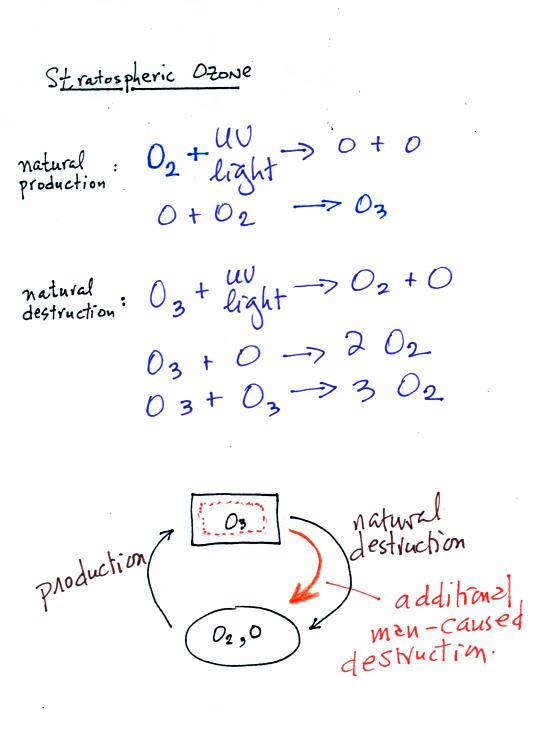 Stratospheric Ozone
natural production : O2 + UV light → O + O
O + O2 → O3
natural destruction : O3 + UV light → O2 + O
O3 + O → 2 O2
O3 + O3 → 3 O2
O3
production
natural
destruction
O2, O
additional
man-caused
destruction.